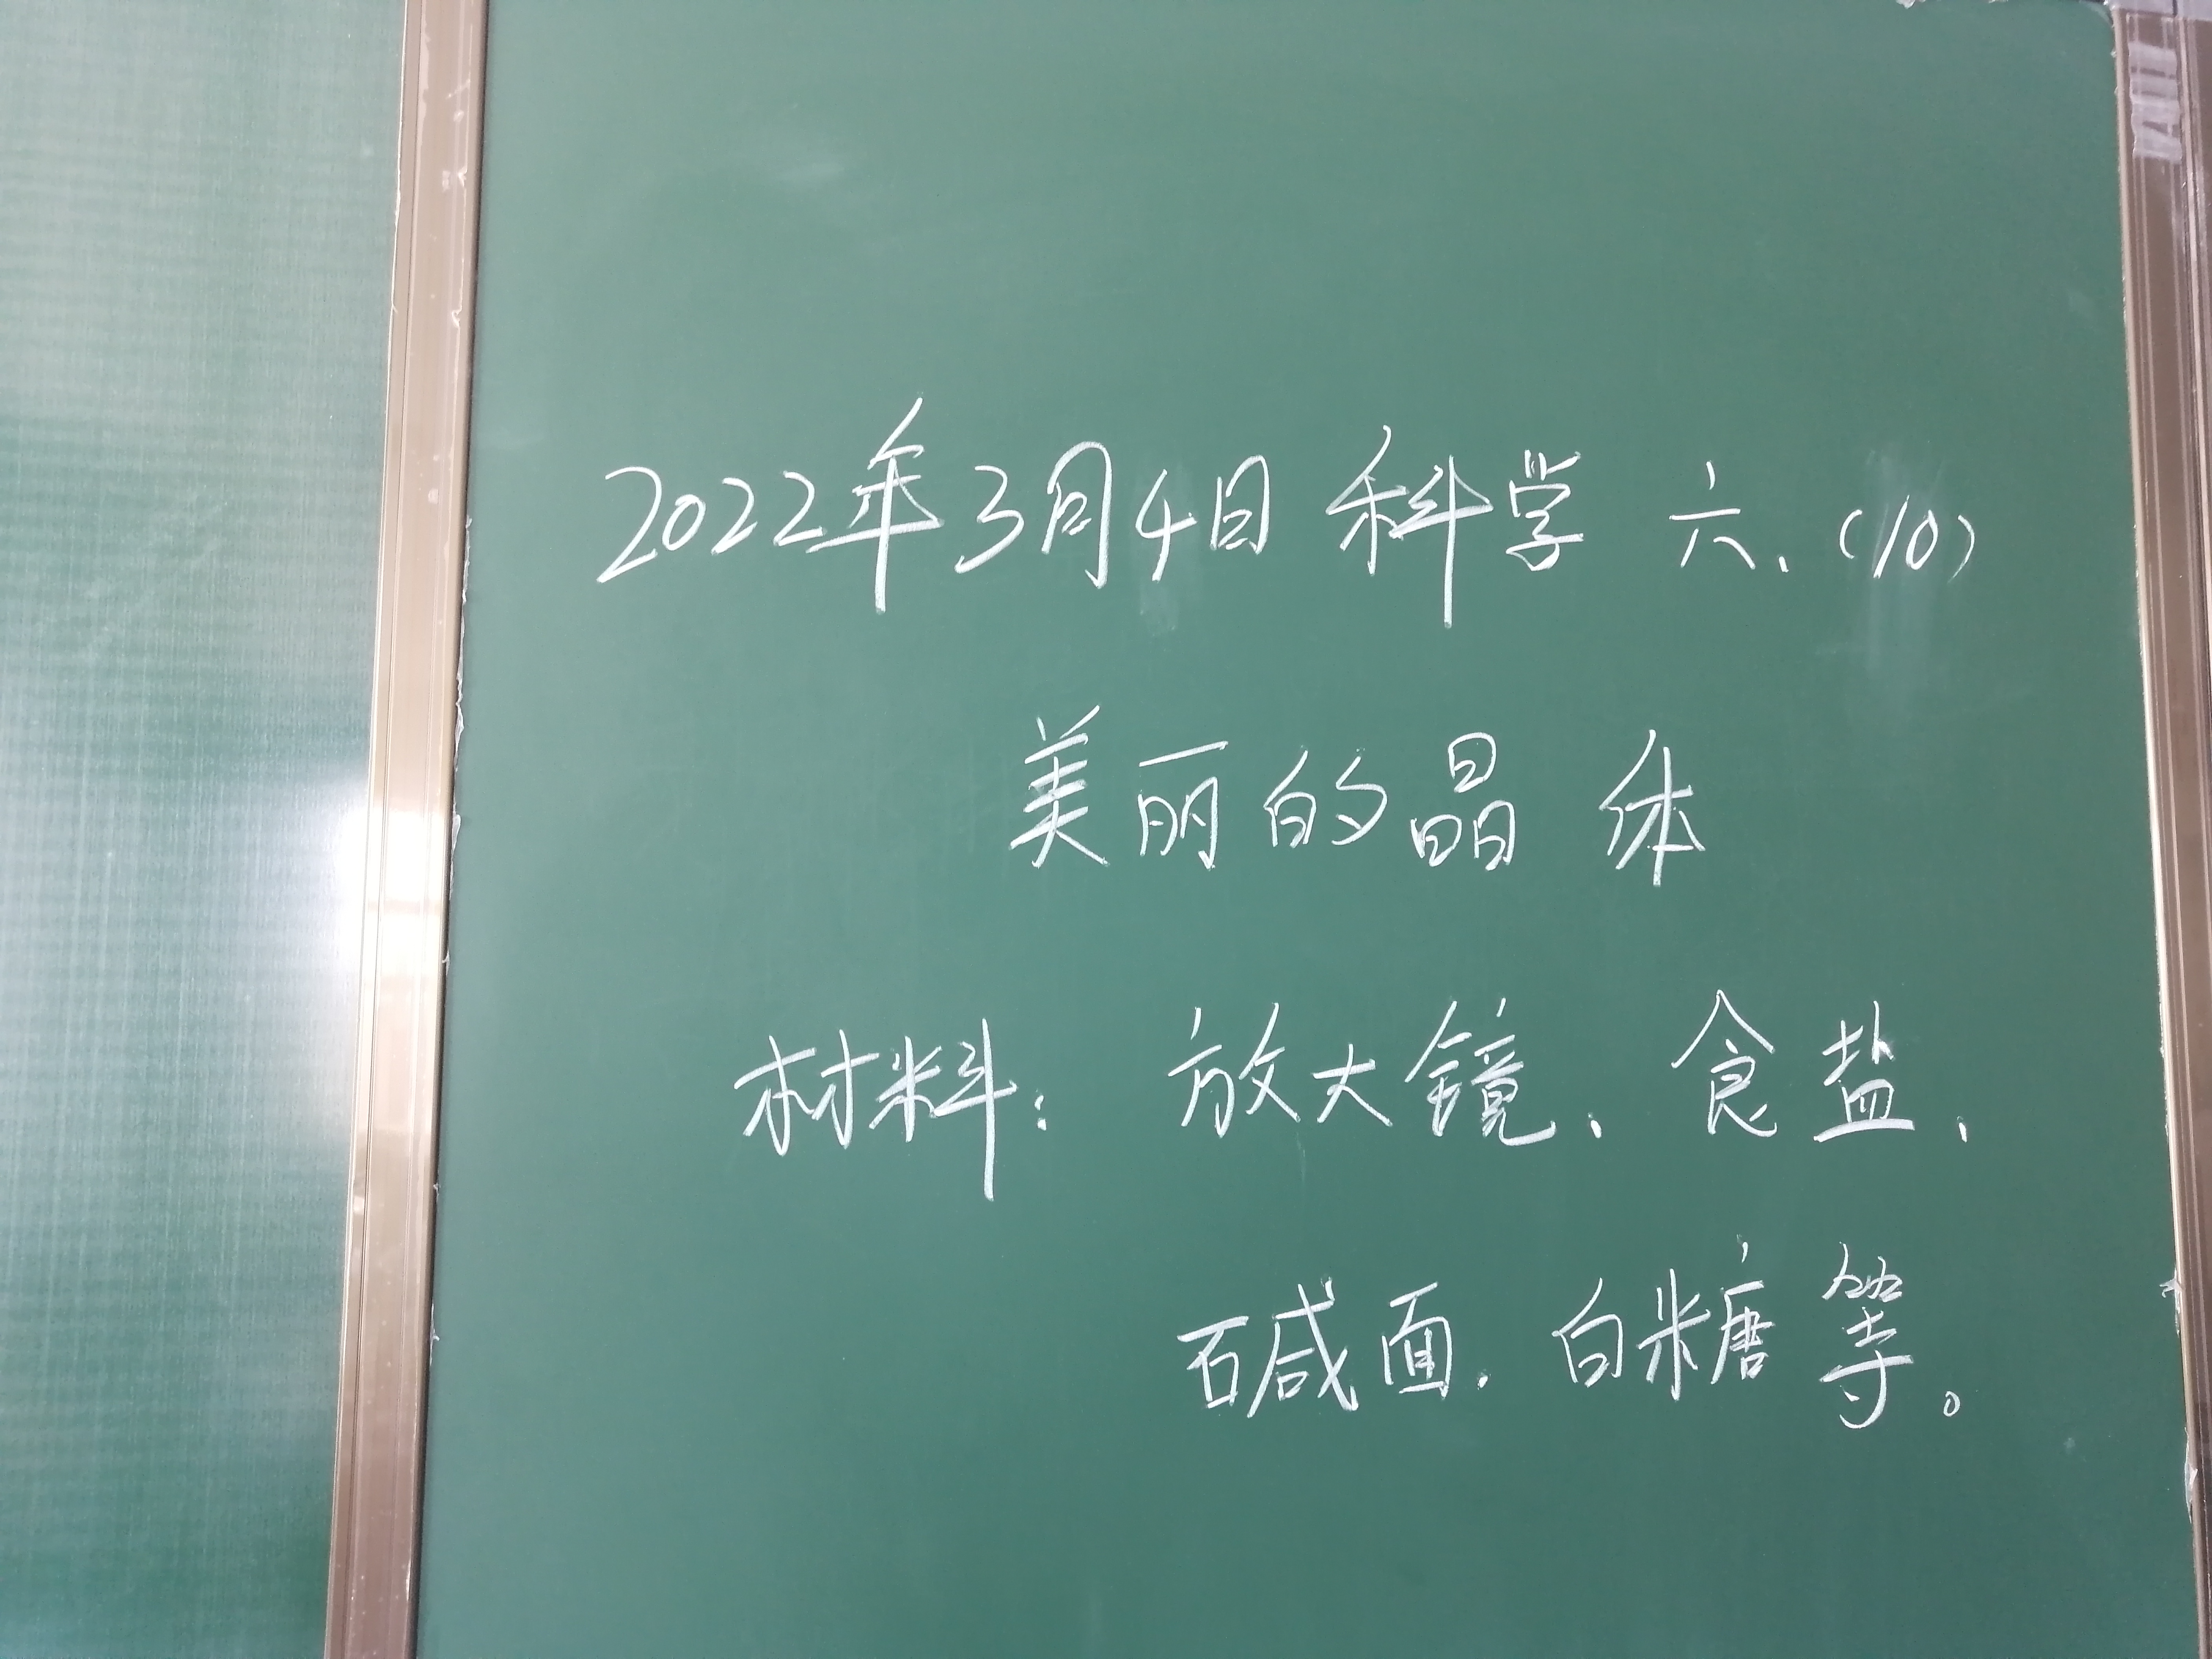 2022年3月4日 科学 六、(10)
美丽的晶体
材料：放大镜、食盐、
碱面、白糖等。